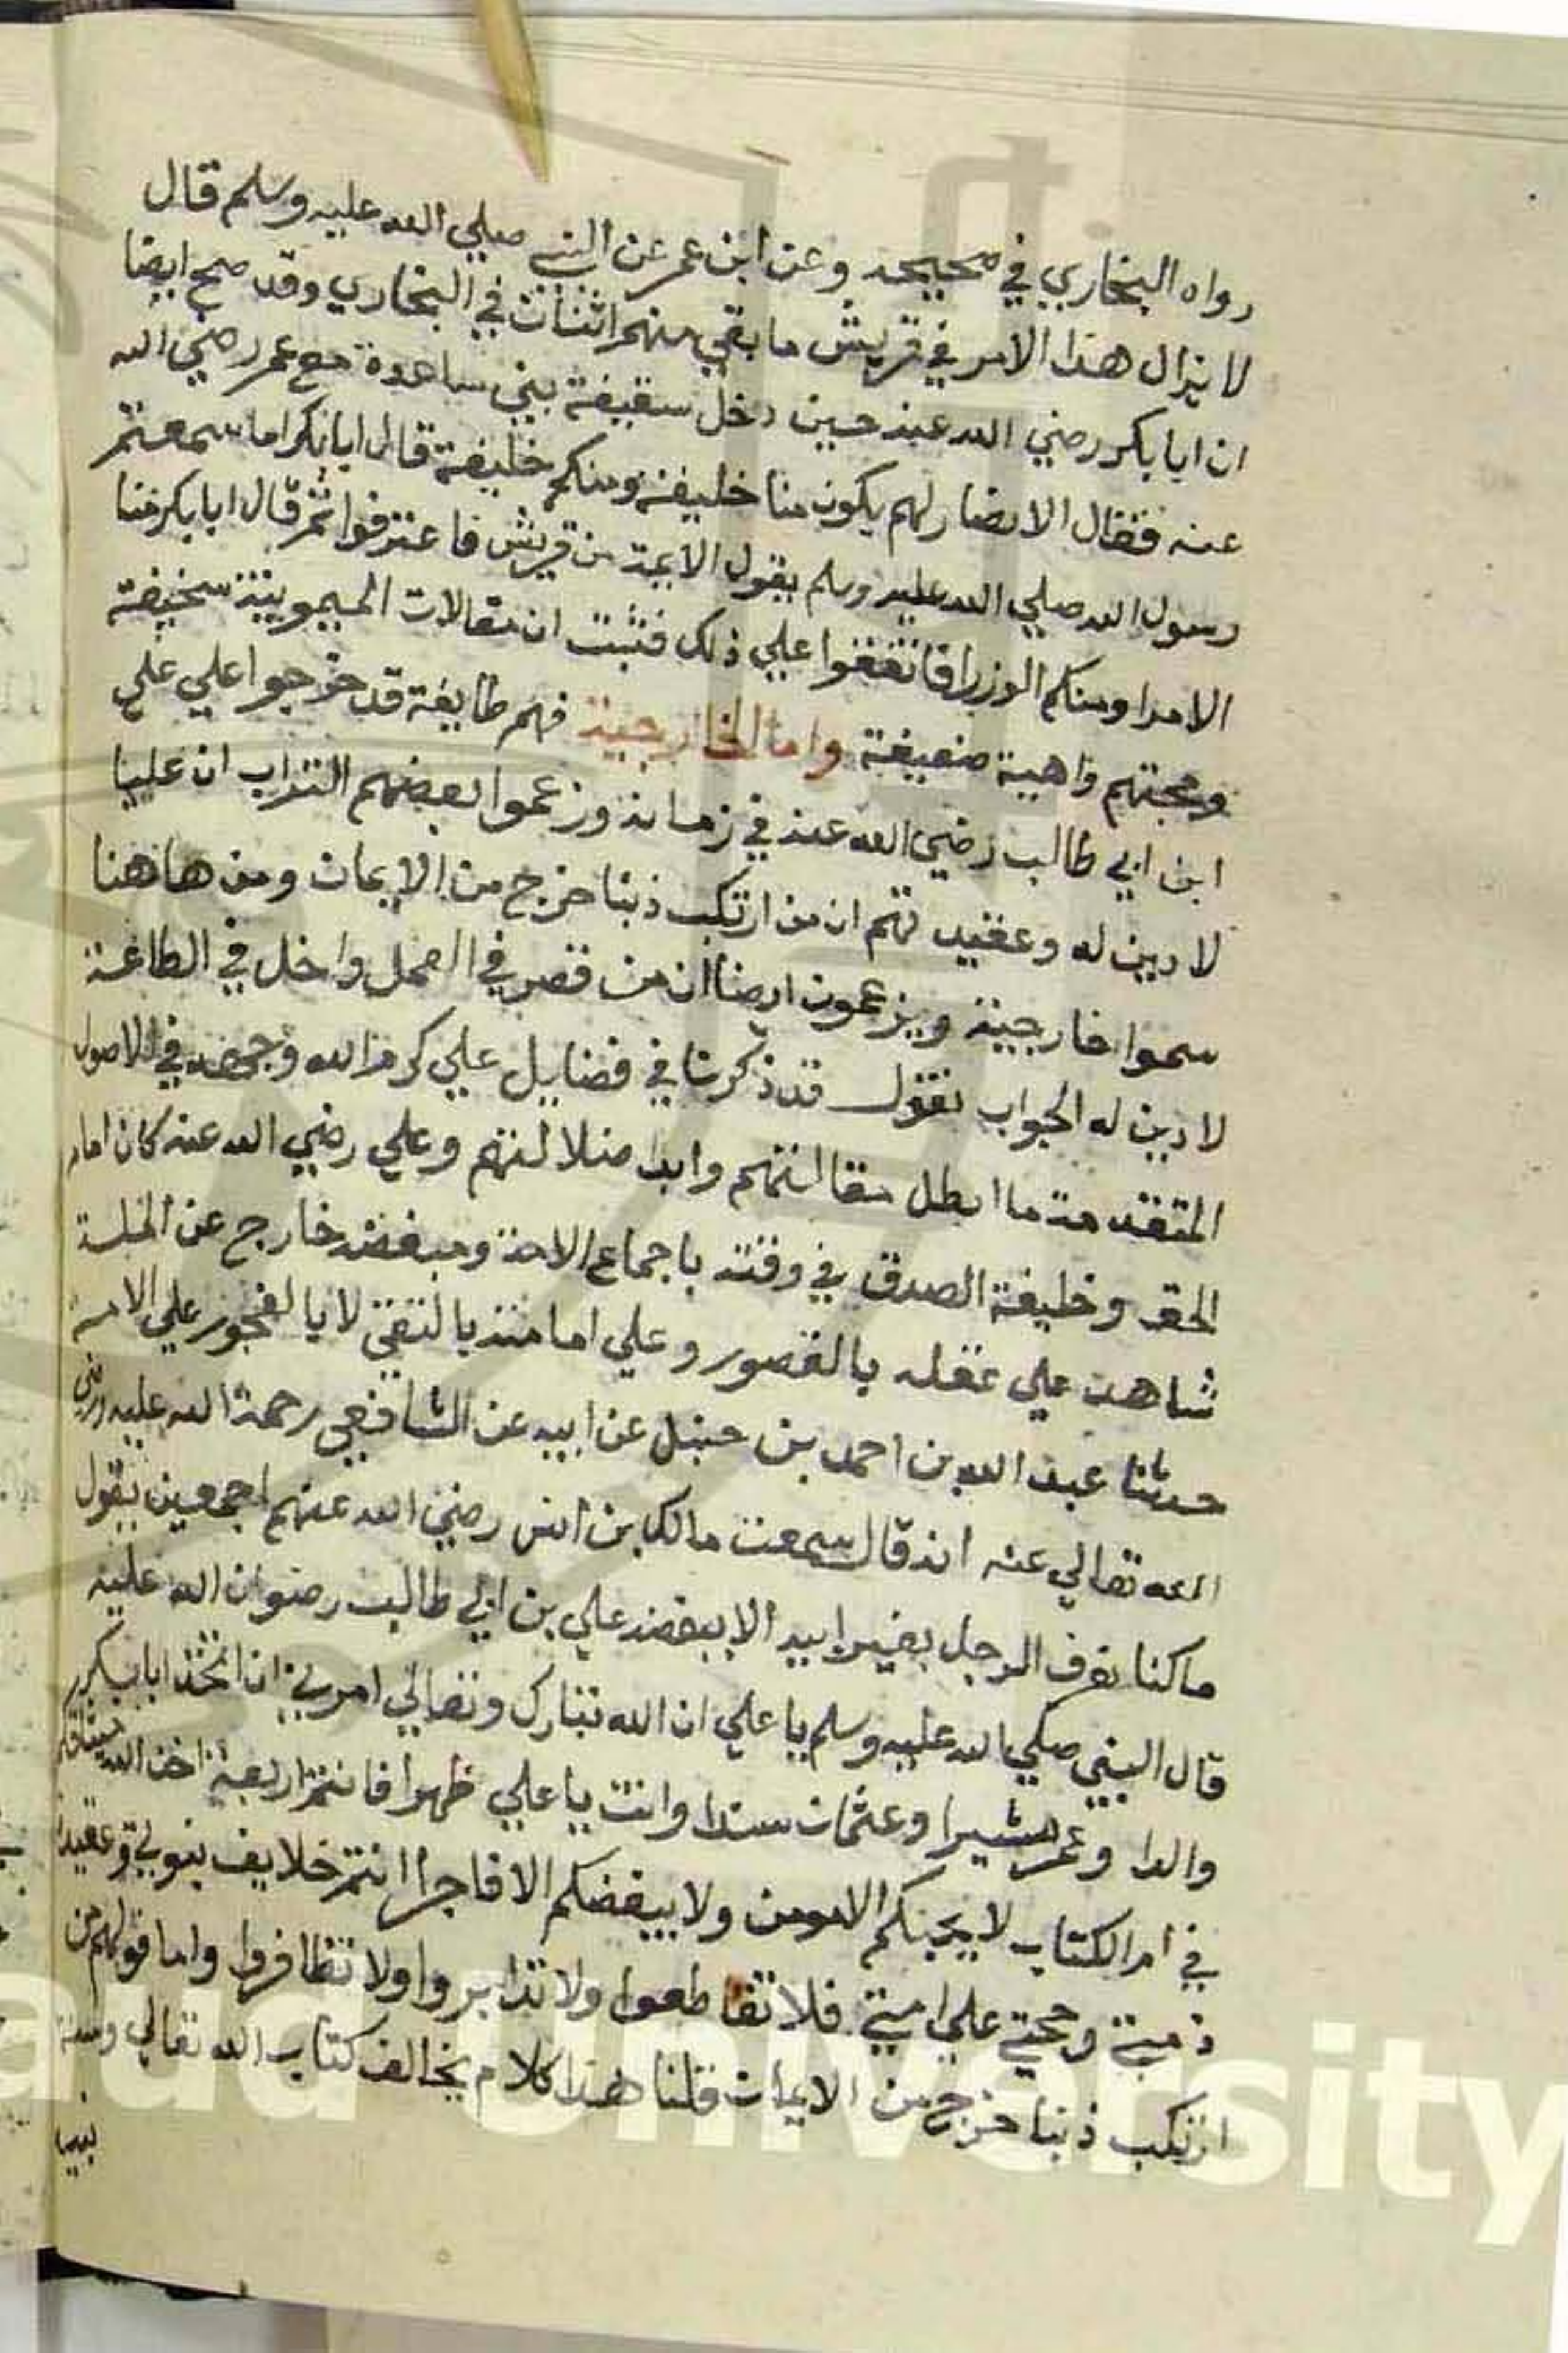 رواه البخاري في صحيحه وعن ابن عمر عن النبي صلي الله عليه وسلم قال
لا يزال هذا الامر في قريش ما بقي منهم اثنان في البخاري وقد صح ايضا
ان ابا بكر رضي الله عنه حين دخل سقيفة بني ساعدة مع عمر رضي الله
عنه فقال الانصار لهم يكون منا خليفة ومنكم خليفة قال ابا بكر اما سمعتم
رسول الله صلي الله عليه وسلم يقول الايمة من قريش فاعترفوا ثم قال ابا بكر منا
الامرا ومنكم الوزرا فاتفقوا علي ذلك فثبت ان مقالات الميمونية سخيفة
وحجتهم واهية ضعيفة واما الخارجية فهم طايفة قد خرجوا علي علي
ابن ابي طالب رضي الله عنه في زمانه وزعموا لبعضهم التراب ان عليا
لا دين له وعقيدتهم ان من ارتكب ذنبا خرج من الايمان ومن هاهنا
سموا خارجية ويزعمون ايضا ان من قصر في العمل واخل في الطاعة
لا دين له الجواب نقول قد ذكرنا في فضايل علي كرم الله وجهه في الاصول
المتقدمة ما ابطل مقالتهم وابدا ضلالتهم وعلي رضي الله عنه كان امام
الحق وخليفة الصدق في وقته باجماع الامة ومبغضه خارج عن الملة
شاهد علي عقله بالقصور وعلي امامته بالتقي لا بالفجور علي الامة
حدثنا عبد الله بن احمد بن حنبل عن ابيه عن الشافعي رحمة الله عليه ورضي
الله تعالي عنه انه قال سمعت مالك بن انس رضي الله عنهم اجمعين يقول
ما كنا نعرف الرجل بغير ابيه الا ببغضه علي بن ابي طالب رضوان الله عليه
قال النبي صلي الله عليه وسلم يا علي ان الله تبارك وتعالي امرني ان اتخذ ابا بكر
والدا وعمر مشيرا وعثمان سندا وانت يا علي ظهرا فانتم اربعة اخذ الله ميثاقكم
في ام الكتاب لا يحبكم الا مومن ولا يبغضكم الا فاجرا انتم خلايف نبوتي وعقيدة
ذمتي وحجتي علي امتي فلا تقاطعوا ولا تدابروا ولا تظافروا واما قولهم من
ارتكب ذنبا خرج من الايمان قلنا هذا كلام يخالف كتاب الله تعالي وسنة
نبيه
aud University